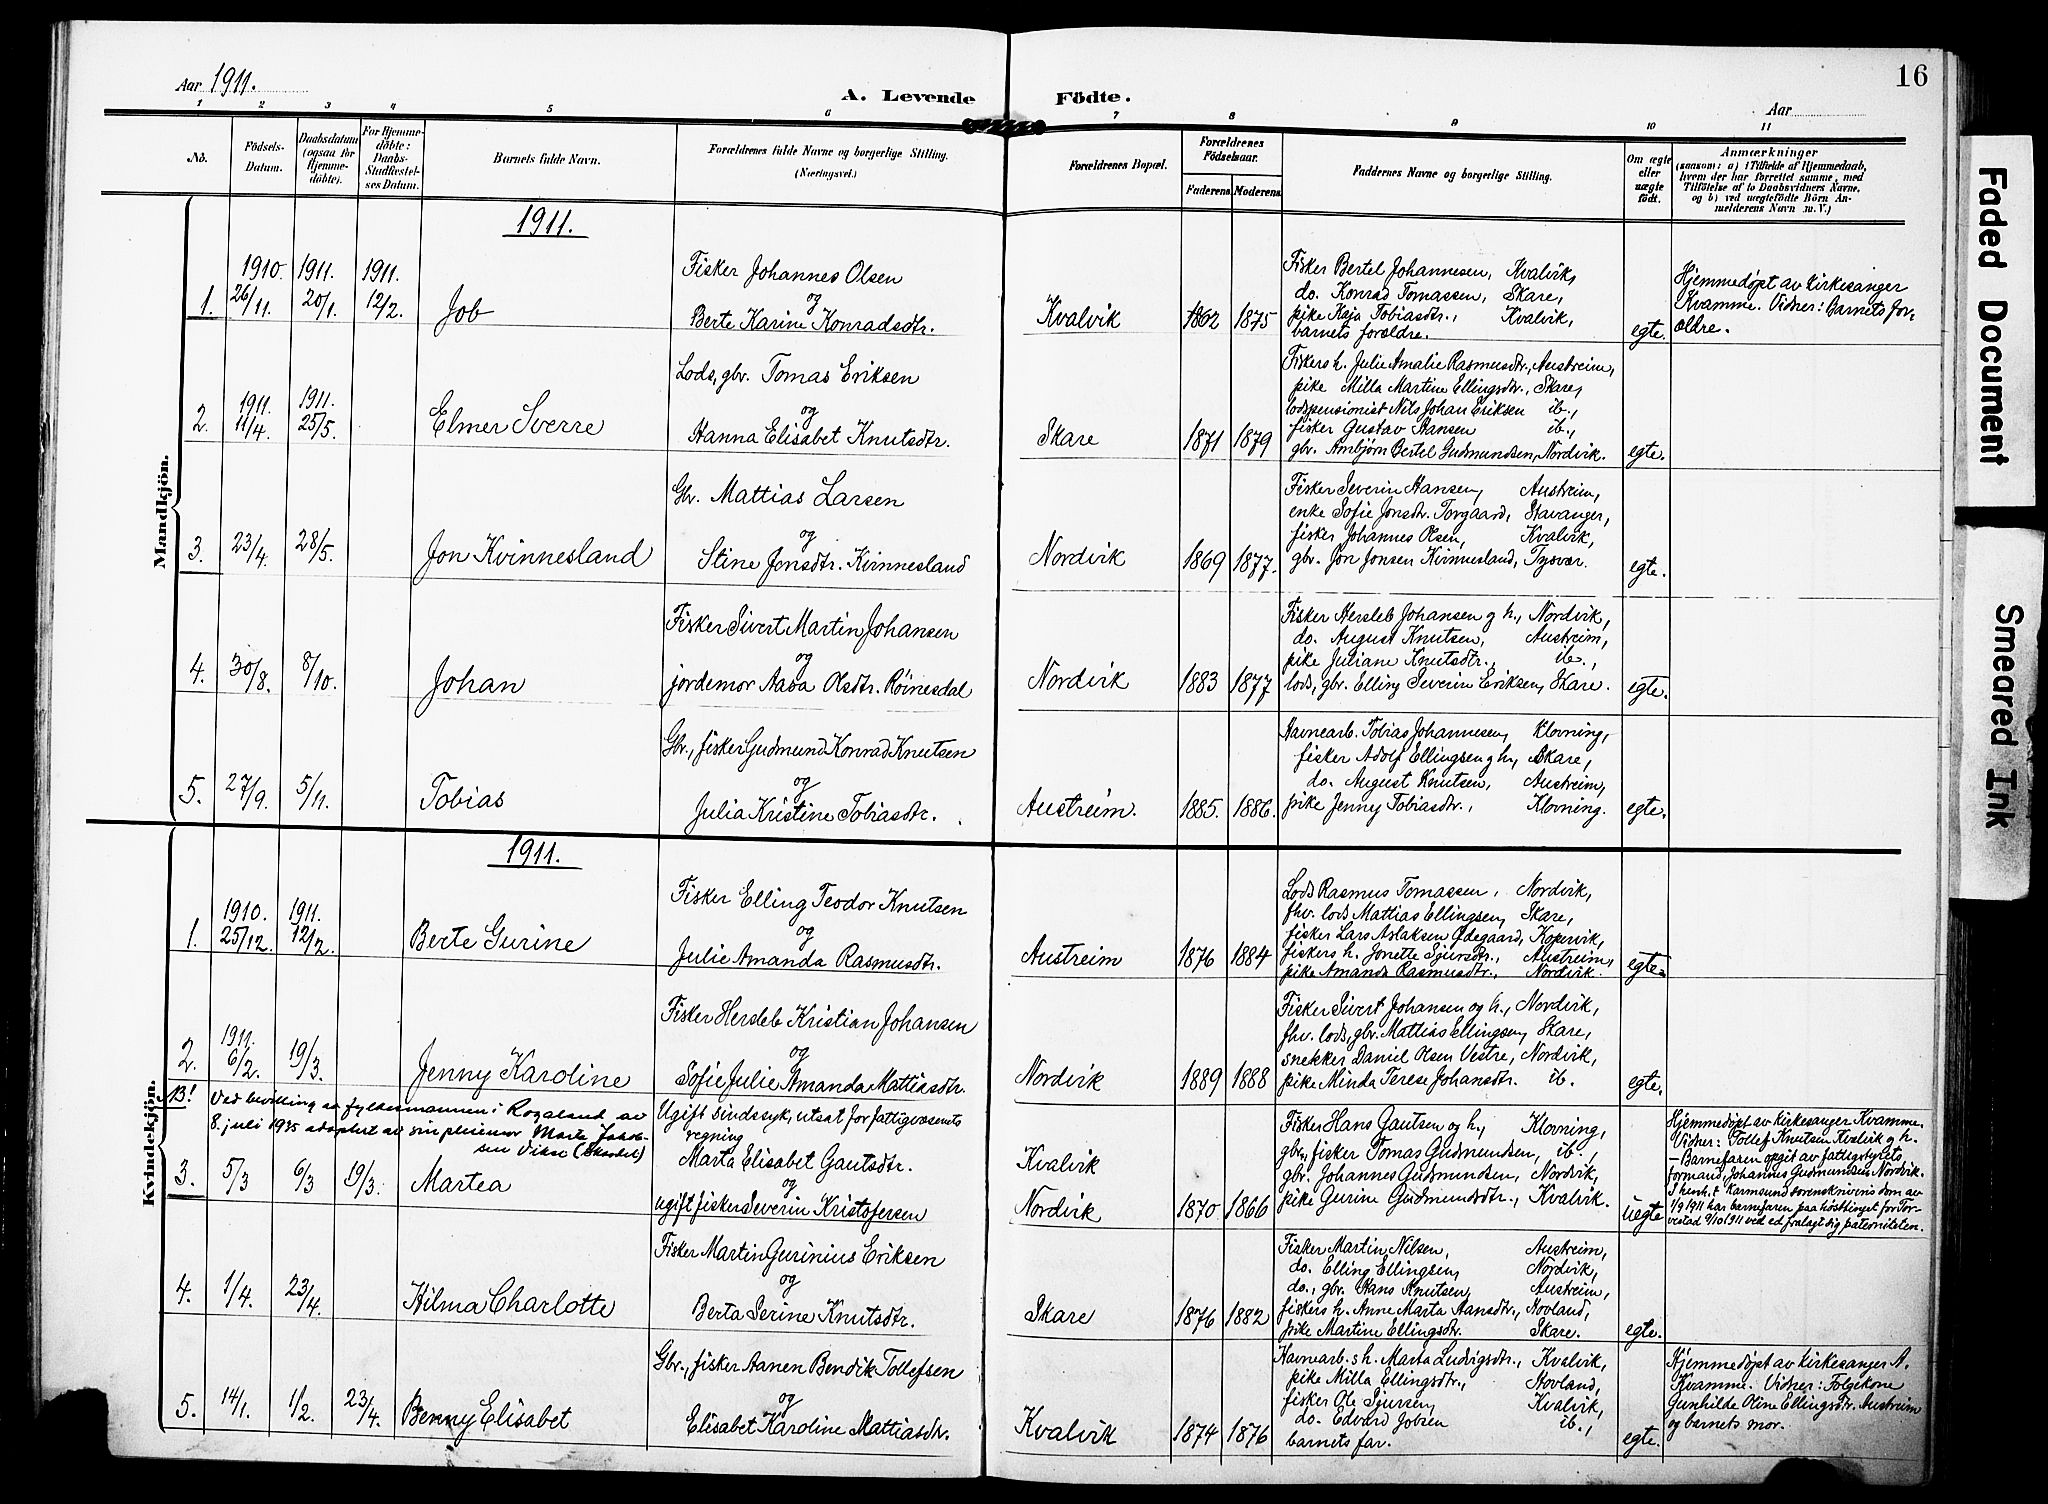 16
Aar 1911.
A. Levende Födte.
Aar
1 2 3 4 5 6 7 8 9 10 11
No.
Födsels-Datum.
Daabsdatum (ogsaa for Hjemme-döbte).
For Hjemme-döbte: Daabs-Stadfæstel-ses Datum.
Barnets fulde Navn.
Forældrenes fulde Navne og borgerlige Stilling.
(Næringsvei.)
Forældrenes Bopæl.
Forældrenes Födselsaar.
Faderens. Moderens.
Faddernes Navne og borgerlige Stilling.
Om ægte eller uægte födt.
Anmærkninger
(saasom: a) i Tilfælde af Hjemmedaab,
hvem der har forrettet samme, med
Tilföielse af to Daabsvidners Navne,
og b) ved uægtefödte Börn An-
melderens Navn m. V.)
Mandkjön.
1911.
1. 1910. 26/11. 1911. 20/1. 1911. 12/2. Job
Fisker Johannes Olsen
og
Berte Karine Konradsdtr.
Kvalvik 1862 1875
Fisker Bertel Johannesen, Kvalvik,
do. Konrad Tomassen, Skare,
pike Kaja Tobiasdtr., Kvalvik,
barnets forældre.
egte.
Hjemmedøpt av kirkesanger
Kvamme. Vidner: Barnets for-
ældre.
2. 1911. 11/4. 1911. 25/5. Elmer Sverre
Lods, gbr. Tomas Eriksen
og
Hanna Elisabet Knutsdtr.
Skare 1871 1879
Fiskers h. Julie Amalie Rasmusdtr., Austreim,
pike Milla Martine Ellingsdtr., Skare,
lodspensionist Nils Johan Eriksen ib.,
fisker Gustav Hansen ib.,
gbr. Ambjørn Bertel Gudmundsen, Nordvik.
egte.
3. 23/4. 28/5. Jon Kvinnesland
Gbr. Mattias Larsen
og
Stine Jonsdtr. Kvinnesland
Nordvik 1869 1877.
Fisker Severin Hansen, Austreim,
enke Sofie Jonsdtr. Torgaard, Stavanger,
fisker Johannes Olsen, Kvalvik,
gbr. Jon Jonsen Kvinnesland, Tysvær.
egte.
4. 30/8. 8/10. Johan
Fisker Sivert Martin Johansen
og
jordemor Aasa Olsdtr. Røinesdal
Nordvik 1883 1877
Fisker Hersleb Johansen og h., Nordvik,
do. August Knutsen, Austreim,
pike Juliane Knutsdtr., ib.,
lods, gbr. Elling Severin Eriksen, Skare.
egte.
5. 27/9. 5/11. Tobias
Gbr., fisker Gudmund Konrad Knutsen
og
Julia Kristine Tobiasdtr.
Austreim. 1885. 1886.
Havnearb. Tobias Johannesen, Klovning,
fisker Adolf Ellingsen og h., Skare,
do. August Knutsen, Austreim,
pike Jenny Tobiasdtr., Klovning.
egte.
Kvindekjön.
1911.
1. 1910. 25/12. 1911. 12/2. Berte Gurine
Fisker Elling Teodor Knutsen
og
Julie Amanda Rasmusdtr.
Austreim 1876 1884
Lods Rasmus Tomassen, Nordvik,
fhv. lods Mattias Ellingsen, Skare,
fisker Lars Aslaksen Ødegaard, Kopervik,
fiskers h. Jonette Sjursdtr., Austreim,
pike Amanda Rasmusdtr., Nordvik
egte.
2. 1911. 6/2. 19/3. Jenny Karoline
Fisker Hersleb Kristian Johansen
og
Sofie Julie Amanda Mattiasdtr.
Nordvik 1889 1888
Fisker Sivert Johansen og h., Nordvik,
fhv. lods, gbr. Mattias Ellingsen, Skare,
snekker Daniel Olsen Vestre, Nordvik,
pike Minda Terese Johansdtr. ib.
egte.
B! Ved bevilling av fylkesmannen i Rogaland av
8. juli 1935 adoptert av sin pleiemor Marta Jakob-
sen Vikse
3. 5/3 6/3 19/3. Martea
Ugift sindssyk, utsat for fattigvæsenets
regning
Marta Elisabet Gautsdtr.
og
ugift fisker Severin Kristofersen
Kvalvik
Nordvik 1870 1866
Fisker Hans Gautsen og h., Klovning,
gbr., fisker Tomas Gudmundsen, ib.,
gbr. Johannes Gudmundsen, Nordvik,
pike Gurine Gudmundsdtr., Kvalvik.
uegte
Hjemmedøpt av kirkesanger Kvamme.
Vidner: Tollef Knutsen Kvalvik og h.
- Barnefaren opgit av fattigstyrets
formand, Johannes Gudmundsen Nordvik.
I henh. t. Karmsund sorenskriveris dom av
1/9 1911 har barnefaren paa høsttinget for Tor-
vestad 9/10 1911 ved ed fralagt sig paterniteten.
4. 1/4. 23/4. Hilma Charlotte
Fisker Martin Gurinius Eriksen
og
Berta Serine Knutsdtr.
Skare 1876 1882
Fisker Martin Nilsen, Austreim,
do. Elling Ellingsen, Nordvik,
do., gbr. Hans Knutsen, Austreim,
fiskers h. Anne Marta Hansdtr., Hovland,
pike Martine Ellingsdtr. Skare.
egte.
5. 14/1. 1/2. 23/4. Benny Elisabet
Gbr., fisker Aanen Bendik Tollefsen
og
Elisabet Karoline Mattiasdtr.
Kvalvik 1874 1876
Havnearb.s h. Marta Ludvigsdtr., Kvalvik,
pike Milla Ellingsdtr., Hovland,
fisker Ole Sjursen, Kvalvik,
do. Edvard Jobsen ib.,
barnets far.
egte.
Hjemmedøpt av kirkesanger A.
Kvamme. Vidner: Følgekone
Gunhilde Oline Ellingsdtr. Austreim
og barnets mor.
Faded Document
Smeared Ink